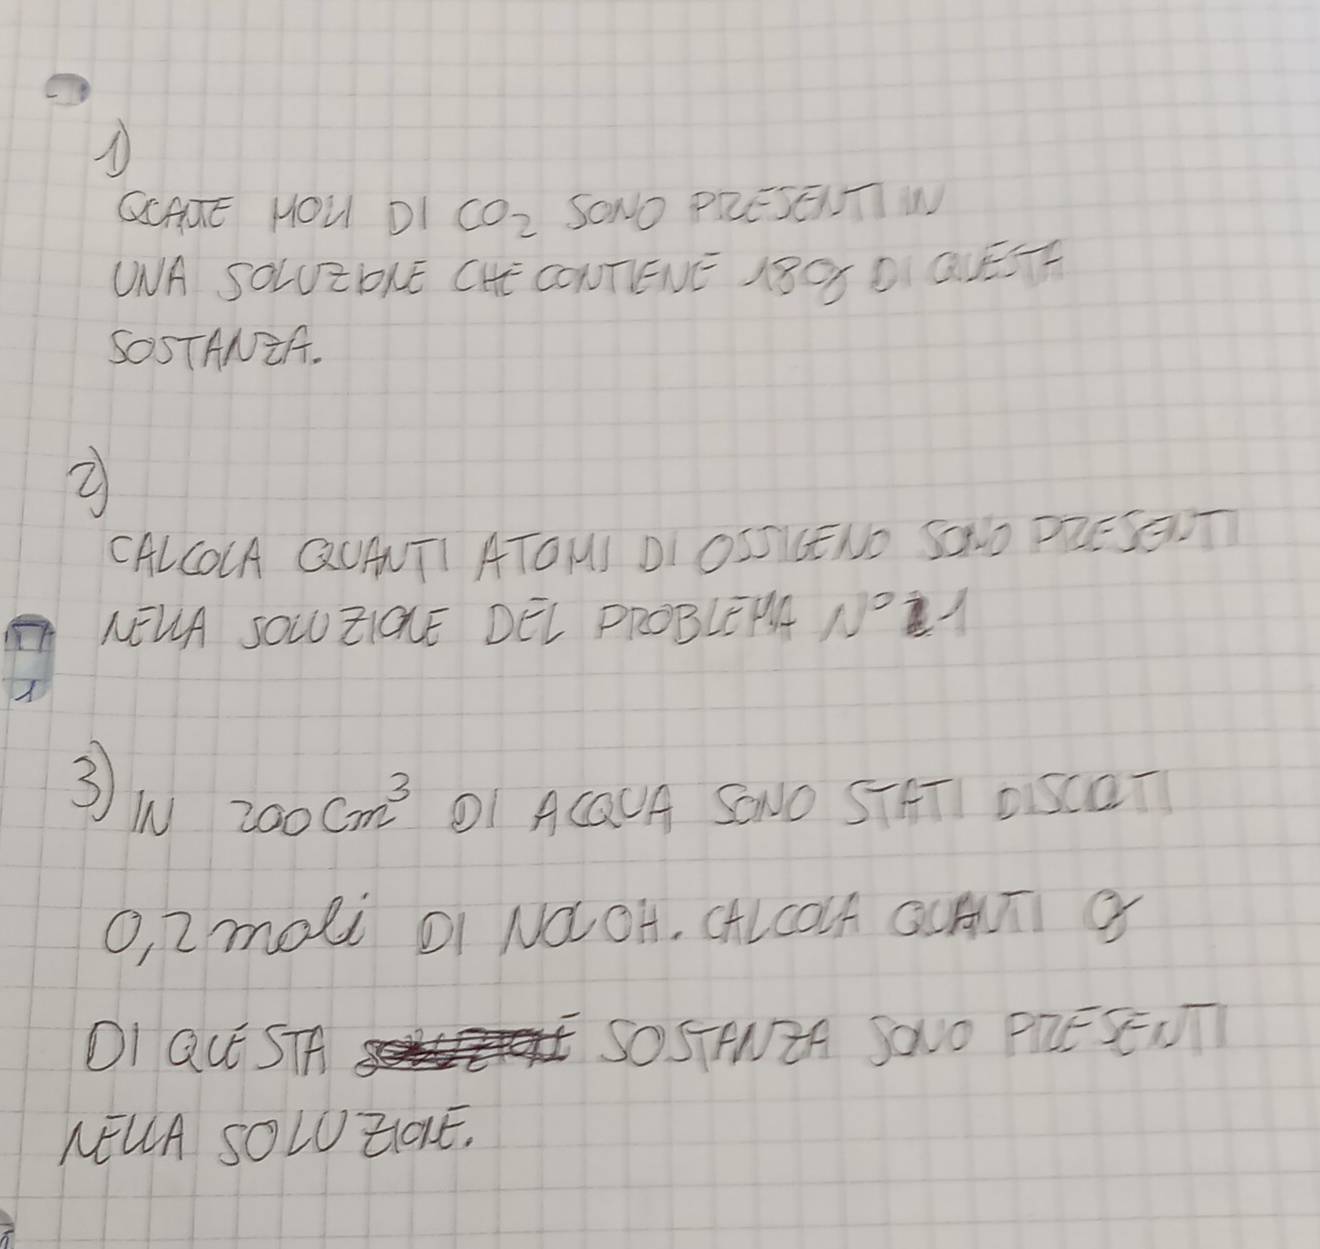 1)
QUANTE MOLI DI CO₂ SONO PRESENTI IN
UNA SOLUZIONE CHE CONTIENE 180g DI QUESTA
SOSTANZA.
2)
CALCOLA QUANTI ATOMI DI OSSIGENO SONO PRESENTI
NELLA SOLUZIONE DEL PROBLEMA N° 1
3) IN 200 cm³ DI ACQUA SONO STATI DISCIOLTI
0,2 moli DI NaOH. CALCOLA QUANTI g
DI QUESTA SOSTANZA SONO PRESENTI
NELLA SOLUZIONE.